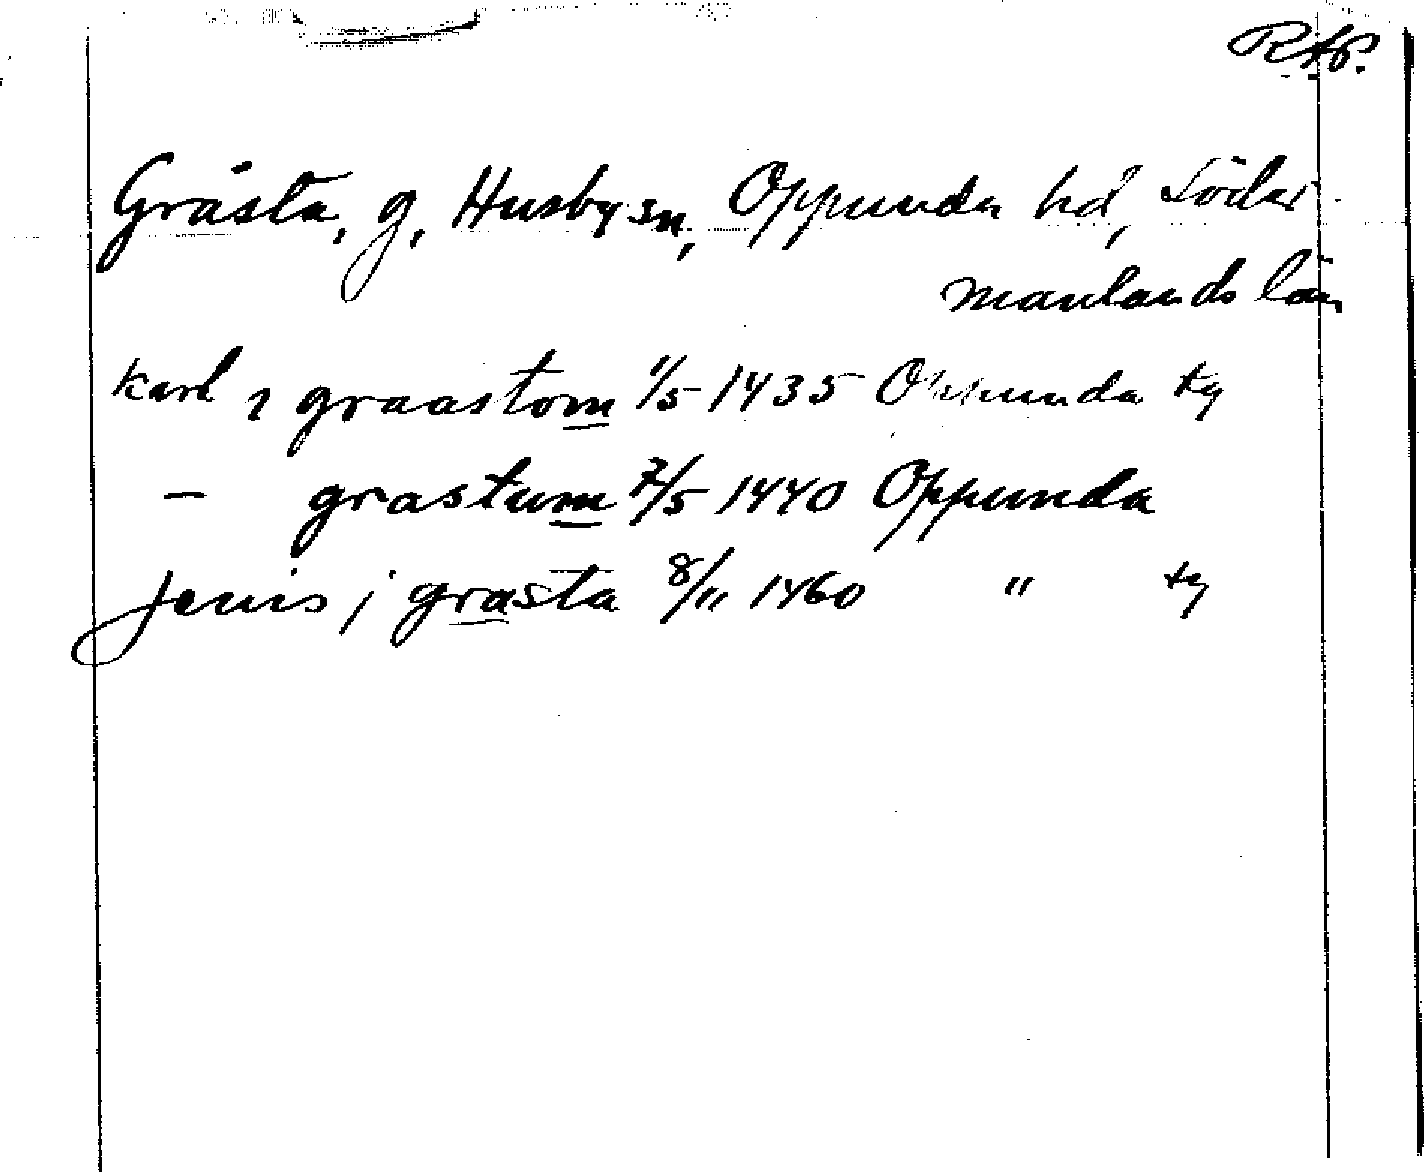 RAP.
Gråsta, g, Husby sn, Oppunda hd, Söder-
manlands län
karl i graastom 1/5 1435 Oppunda tg
– grastum 7/5 1440 Oppunda
Jenis j grasta 8/11 1460 " tg